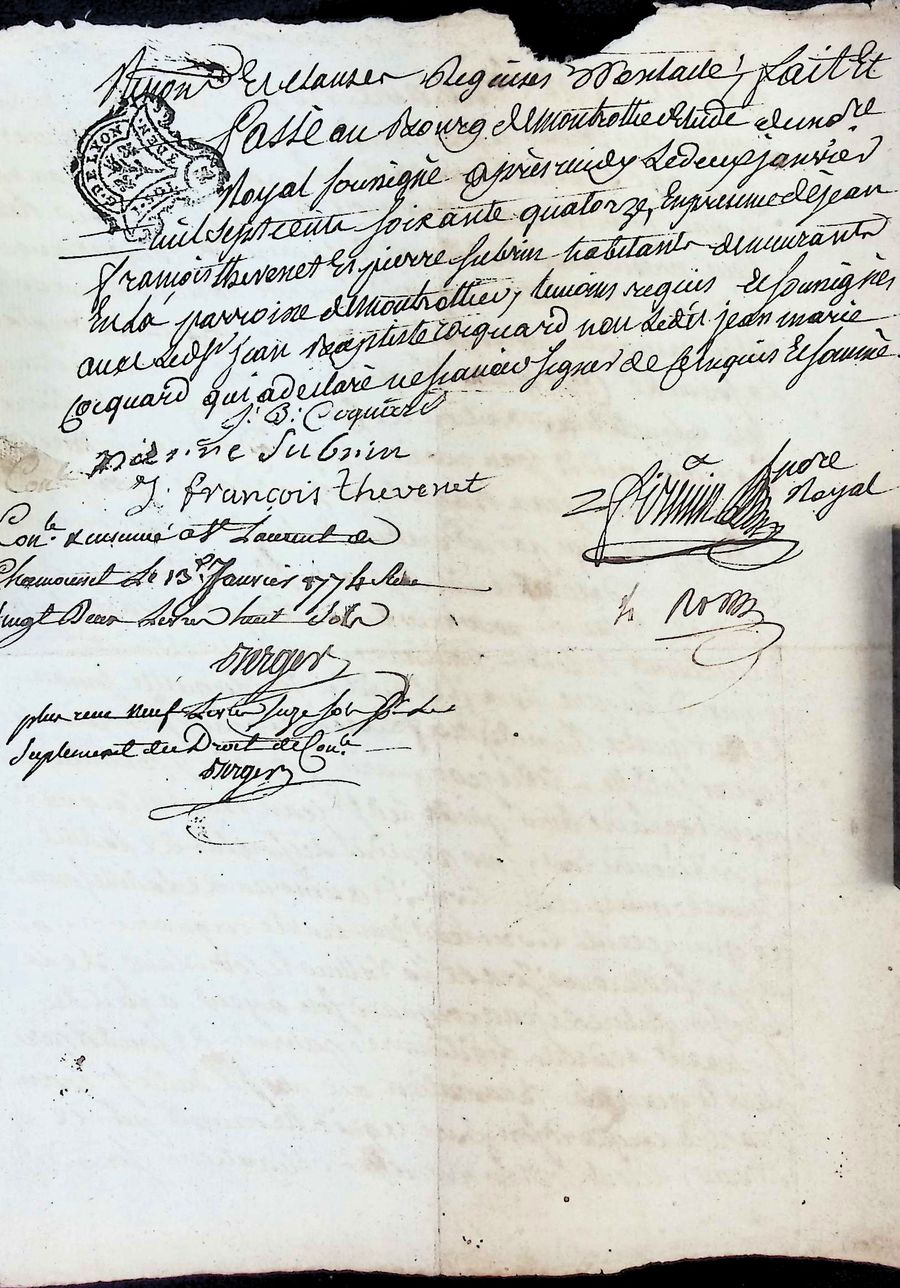 Renon^on Et Clauses Requises Dont acte, fait Et
passé au Bourg de montrottier Etude du no^re
Royal soussigné après midy Le deux janvier
mil sept cent soixante quatorze, En presence de jean
françois thevenet Et pierre subrin habitants demeurants
En La parroisse de montrottier, temoins requis Et soussignés
avec Led^t S^r jean Baptiste Coquard non Ledit jean marie
Coquard qui a declaré ne sçavoir signer de ce Enquis Et sommé
J. B. Coquard
pierre Subrin
J. françois thevenet
No^re Royal
Con^lé & insinué a S^t Laurent de
Chamousset Le 13^e Janvier 1774 Reçu
vingt Deux Livres huit sols
Berger
plus reçu neuf Livres seize sols p^r Le
Suplement du Droit de Con^le
Berger
G. DE LYON